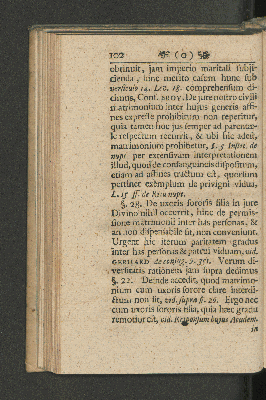 102 (0)
obtinuit, jam imperio maritali subji-
cienda, hinc merito casum hunc sub
versiculo 14. Lev. 18. comprehensum di-
cimus, Conf. BROV. De jure nostro civili
matrimonium inter hujus generis affi-
nes expresse prohibitum non reperitur,
quia tamen hoc jus semper ad parente-
læ respectum recurrit, & ubi hic adest,
matrimonium prohibetur, L. 5 Instit. de
nupt. per extensivam interpretationem
illud, quod de consanguineis dispositum,
etiam ad affines tractum est, quorsum
pertinet exemplum de privigni vidua,
L. 15 ff. de Ritu nupt.
§. 28. De uxoris sororis filia in jure
Divino nihil occurrit, hinc de permis-
sione matrimonii inter has personas, &
an non dispensabile sit, non conveniunt.
Urgent hic iterum paritatem gradus
inter has personas & patrui viduam, vid.
GERHARD de conjug. Verum di-
versitatis rationem jam supra dedimus
§. 21. Deinde accedit, quod matrimo-
nium cum uxoris sorore clare interdi-
ctum non sit, vid. supra §. 26. Ergo nec
cum uxoris sororis filia, quia hæc gradu
remotior est, vid. Responsum hujus Academ-
in